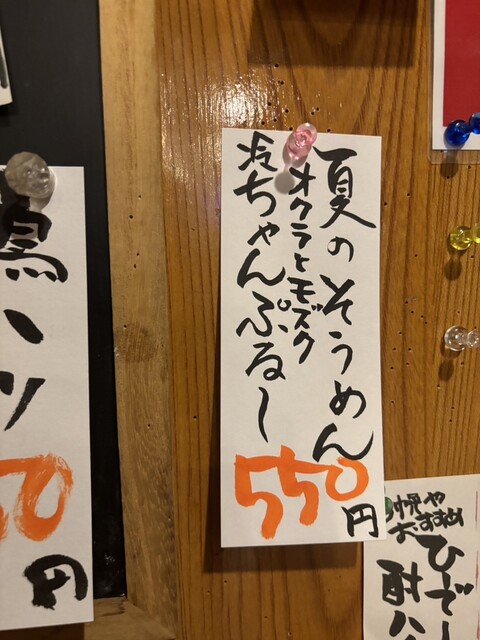 夏のそうめん
オクラとモズク
冷ちゃんぷるー
550円
鳥ハツ
50円
おすすめ
ひでー
酎ハ